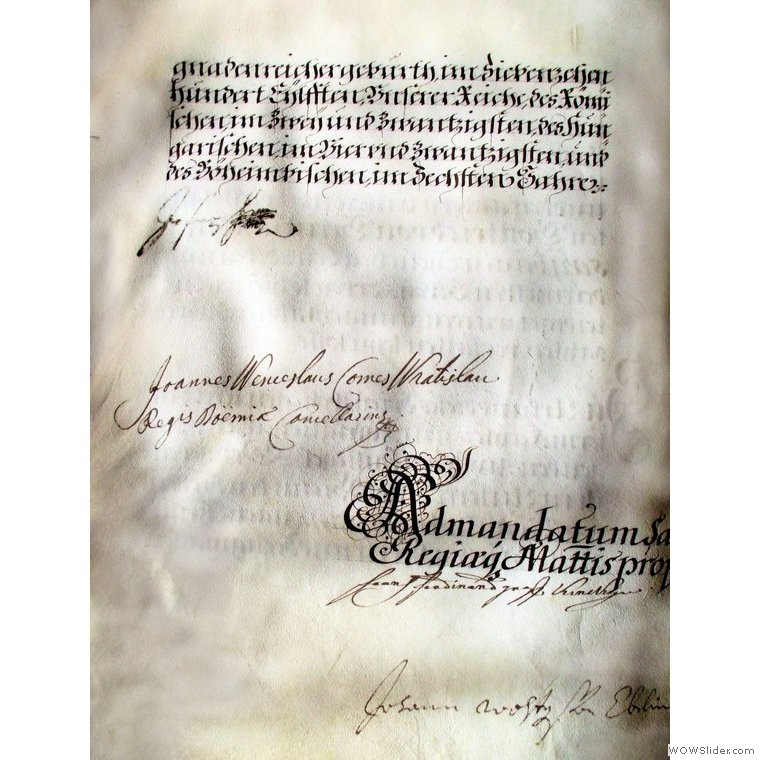 gnadenreicher geburth, im Siebenzehen
hundert Eylfften, Unserer Reiche, des Römi
schen, im Zwey und Zwantzigsten, des Hun
garischen, im Vier und Zwantzigsten, und
des Böheimbischen, im Sechsten Jahre.
Joannes Wenceslaus Comes Wratislau
Regis Boëmiæ Cancellarius
Ad mandatum Sa
Regiæq Mattis prop
Ferdinand
Johann
WOWSlider.com